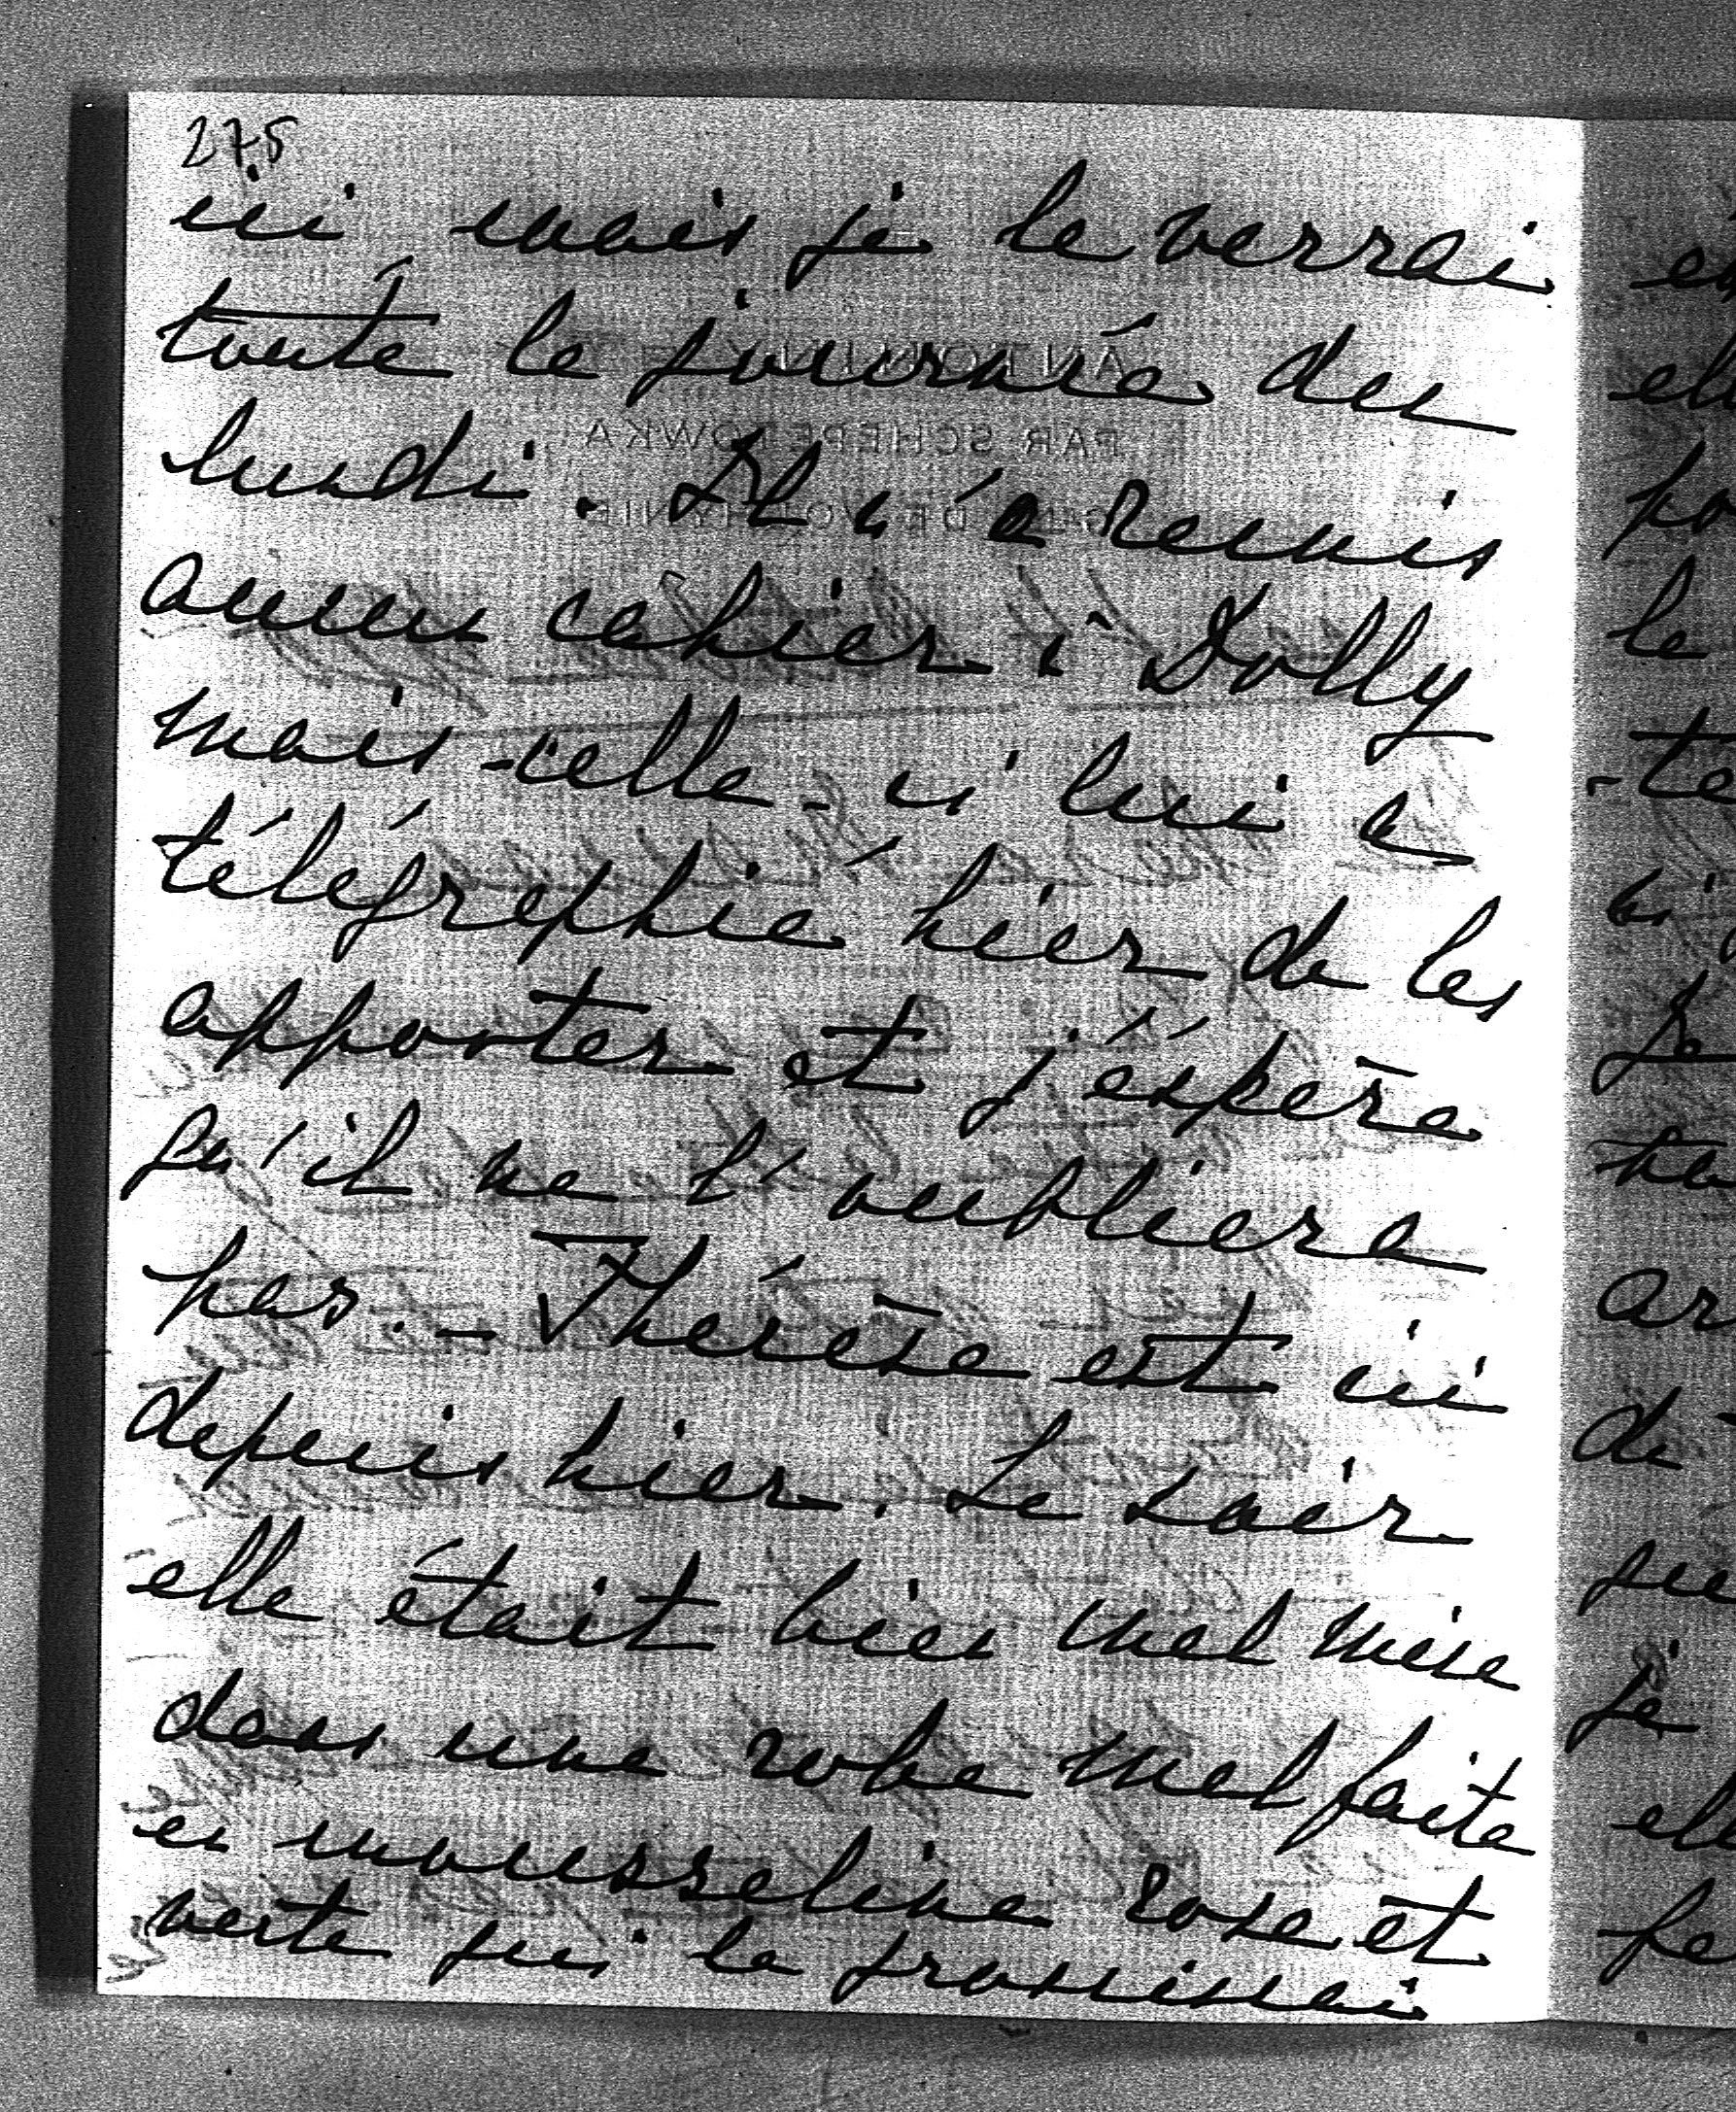 275
ici mais je le verrai
toute la journée du
lundi. Il n'a remis
aucun cahier à Dolly
mais celle-ci lui a
télégraphié hier de les
apporter et j'éspère
qu'il ne l'oubliera
pas. - Thérèse est ici
depuis hier. Le soir
elle était bien mal mise
dans une robe mal faite
en mousseline rose et
verte qui la
ANTONINY
PAR SCHEPETOWKA
GT DE VOLHYNIE